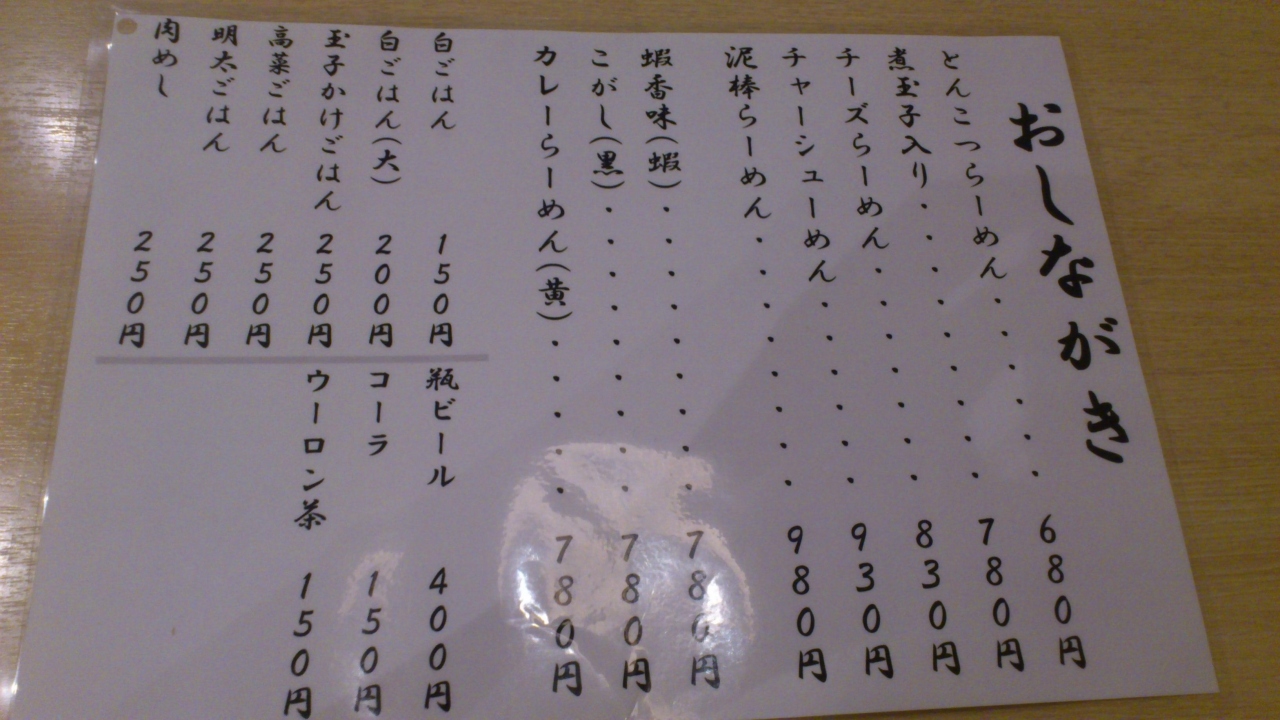 おしながき
とんこつらーめん・・・・・・680円
煮玉子入り・・・・・・・・・780円
チーズらーめん・・・・・・・830円
チャーシューめん・・・・・・930円
泥棒らーめん・・・・・・・・980円
蝦香味(蝦)・・・・・・・・・780円
こがし(黒)・・・・・・・・・780円
カレーらーめん(黄)・・・・・780円
白ごはん 150円
白ごはん(大) 200円
玉子かけごはん 250円
高菜ごはん 250円
明太ごはん 250円
肉めし 250円
瓶ビール 400円
コーラ 150円
ウーロン茶 150円